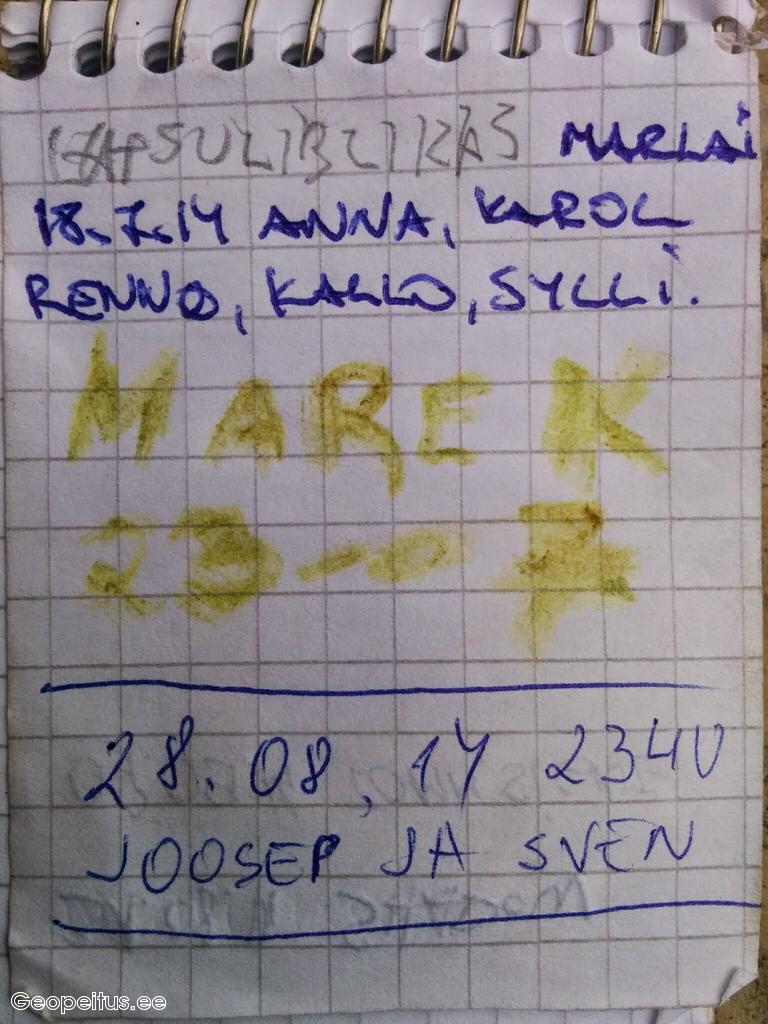 KAPSULIBLIKAS MARLAI
18.7.14 ANNA, KAROL
RENNO, KALLO, SYLLI.
MAREK
23-07
28.08.14 2340
JOOSEP JA SVEN
Geopeitus.ee